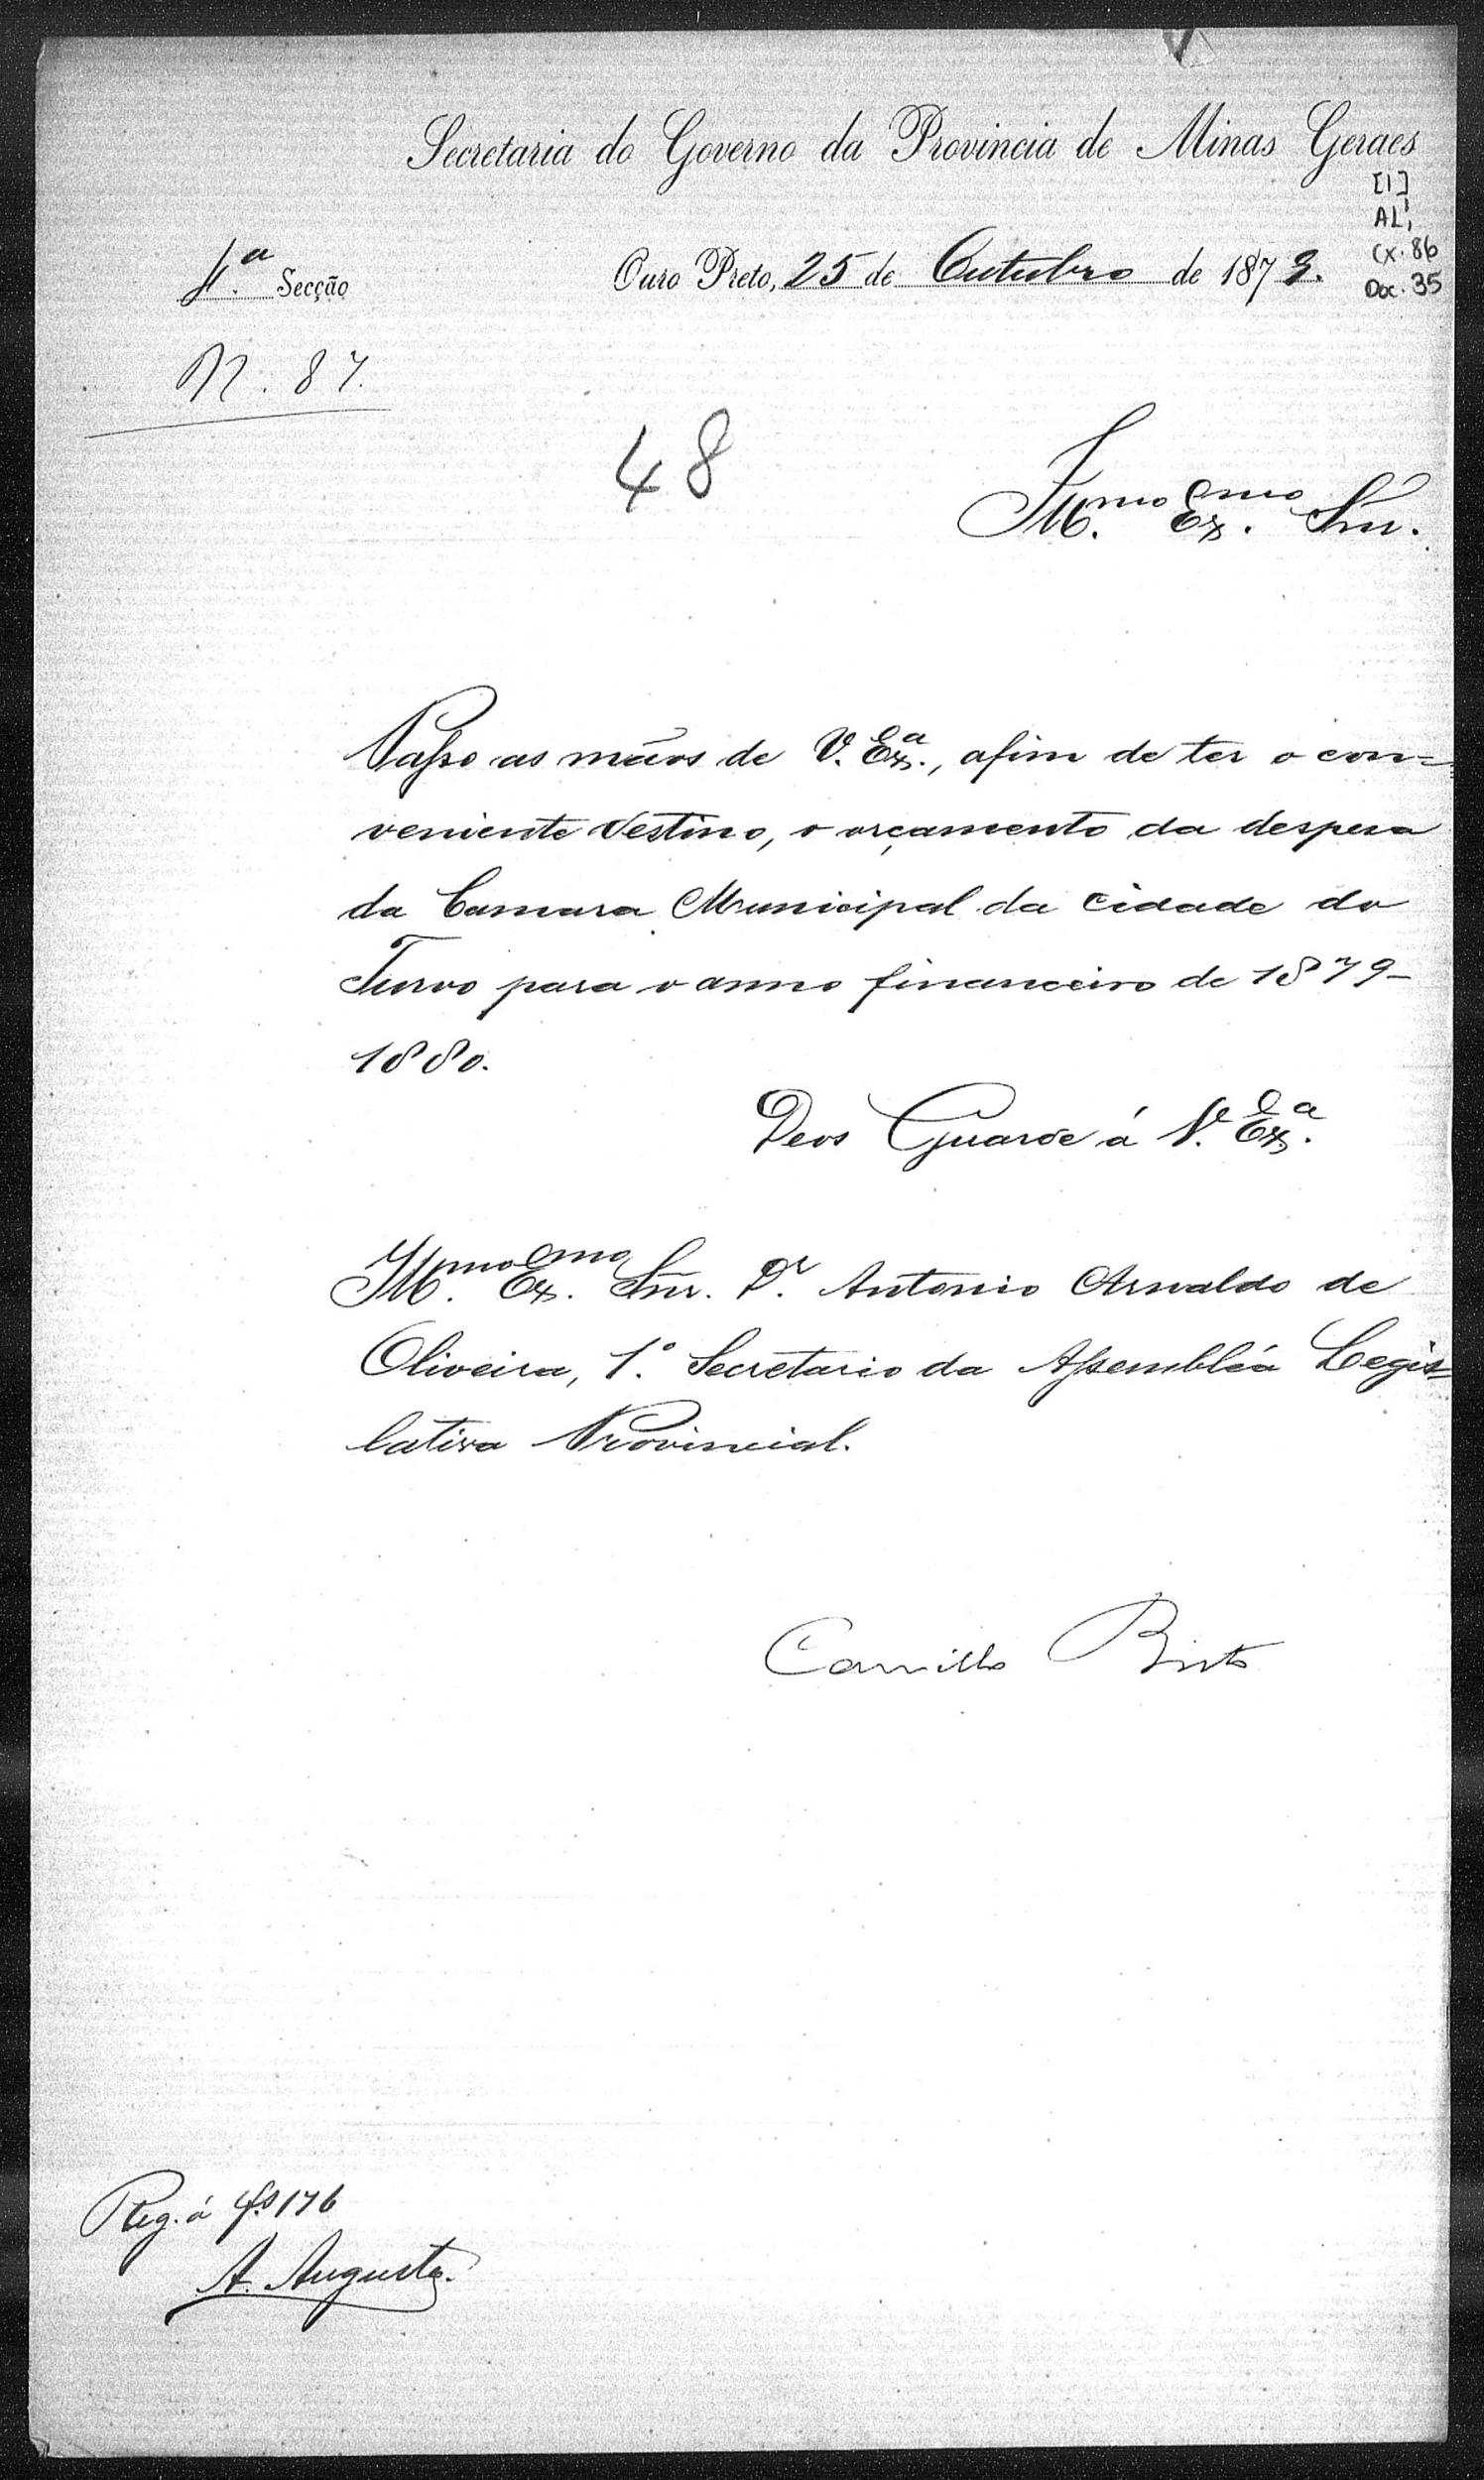 Secretaria do Governo da Provincia de Minas Geraes
[1]
AL1,
Cx. 86
Doc. 35
4.ª Secção
Ouro Preto, 25 de Outubro de 1879.
N. 87.
48
Ill.mo Ex.mo Snr.
Passo as mãos de V. Ex.ª, afim de ter o con=
veniente destino, o orçamento da despesa
da Camara Municipal da cidade do
Turvo para o anno financeiro de 1879-
1880.
Deos Guarde á V. Ex.ª
Ill.mo Ex.mo Snr. Dr. Antonio Arnaldo de
Oliveira, 1.º Secretario da Assembléa Legis=
lativa Provincial.
Camillo Brito
Reg. á fs 176
A. Augusto.